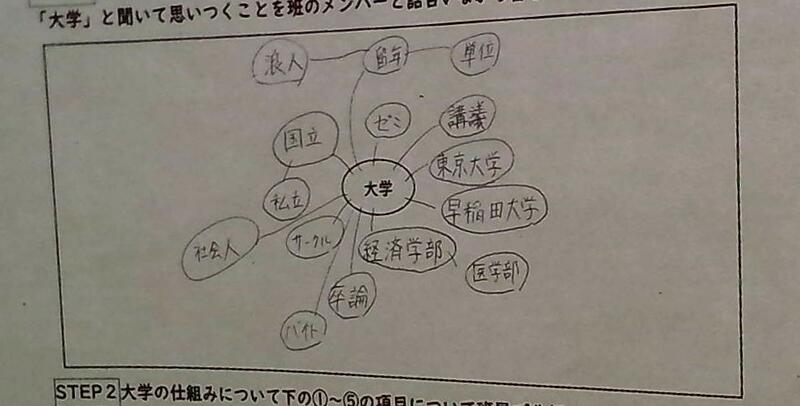 「大学」と聞いて思いつくことを班のメンバーと話合い
浪人
留年
単位
ゼミ
講義
国立
東京大学
大学
私立
早稲田大学
社会人
サークル
経済学部
医学部
卒論
バイト
STEP2 大学の仕組みについて下の①~⑤の項目について